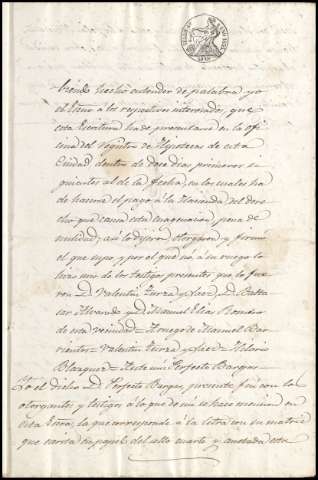 biendo hecho entender de palabra yo
el Essno a los respectivos interesados, que
esta Escritura ha de presentarse en la Ofi
cina del registro de Hipotecas de esta
Ciudad dentro de doce dias primeros si
guientes al de la fecha, en los cuales ha
de hacerse el pago á la Hacienda del dere
cho que causa esta enagenacion, pena de
nulidad, así lo dijeron otorgaron y firmó
el que supo y por el que no á su ruego lo
hizo uno de los testigos presentes que lo fue
ron D. Valentin y D. Balta
sar Alvarado y Manuel Elias Romero
de esta vecindad = A ruego de Manuel Bar
rientos = Valentin = Hilario
Blazquez = Ante mi Perfecto Barges
Yo el dicho D. Perfecto Barges, presente fui con los
otorgantes y testigos á lo que de mi se hace mencion en
esta Essra, la que corresponde á la letra con su matriz
que escrita en papel del sello cuarto y anotada esta